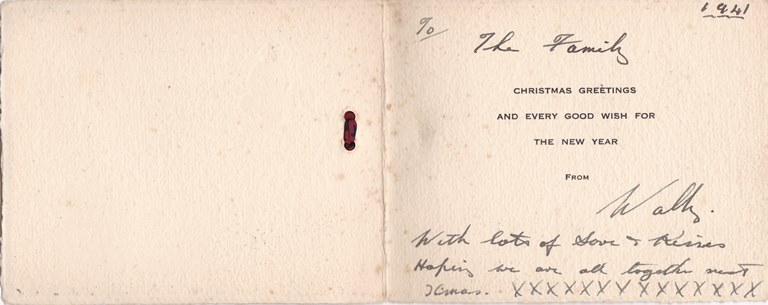 1941
To
The Family
CHRISTMAS GREETINGS
AND EVERY GOOD WISH FOR
THE NEW YEAR
FROM
Wally.
With lots of Love & Kisses
Hoping we are all together next
Xmas. XXXXXXXXXXXXXX